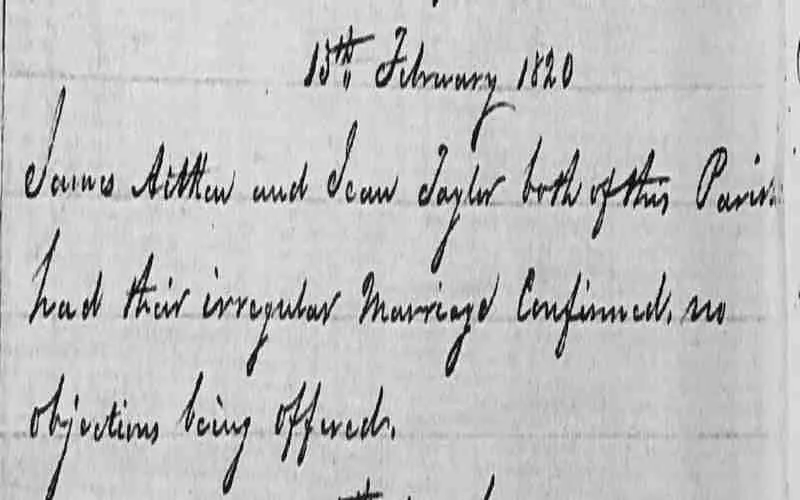 15th,, February 1820
James Aitken and Jean Taylor both of this Paris.
had their irregular Marriage Confirmed, no
objections being offered.